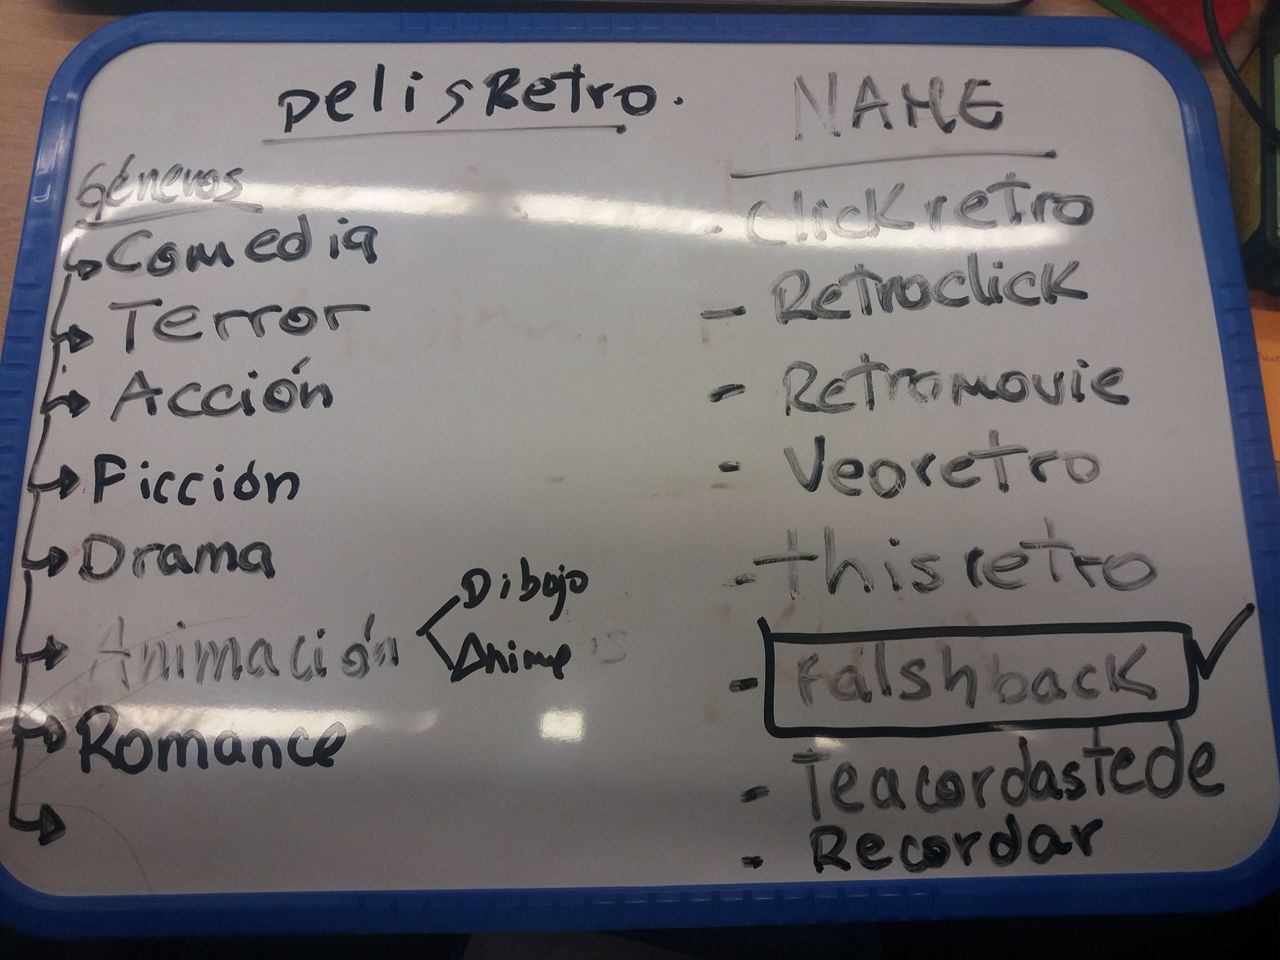 pelisRetro.
Géneros
Comedia
Terror
Acción
Ficción
Drama
Animación
Dibujo
Anime
Romance
NAME
- clickretro
- Retroclick
- Retromovie
- Veoretro
- thisretro
- Falshback
- Teacordastede
- Recordar